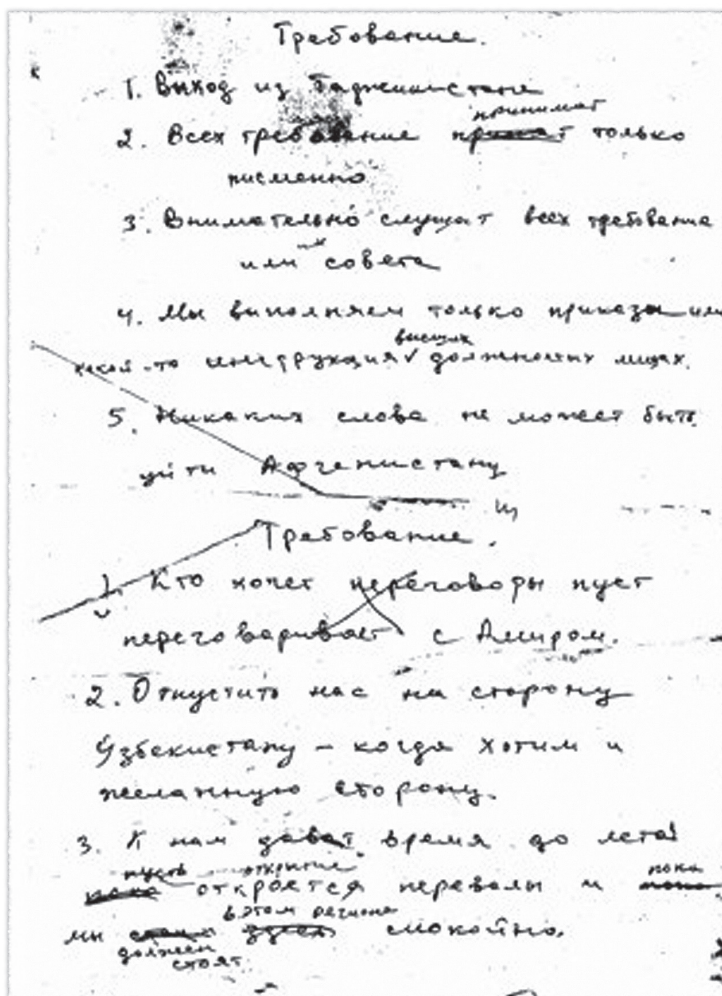 Требование.
1. Выход из Таджикистане
принимат
2. Всех требование только
писменно
3. Внимательно слушат всех требование
или совета
4. Мы выполняем только приказы или
высших
какой-то инструкция должносных лицах.
5. Никаких слова не может быть
уйти Афгенистану
Требование.
1. Кто хочет переговоры пуст
переговаривает с Амиром.
2. Отпустить нас на сторону
Узбекистану - когда хотим и
желанную сторону.
3. К нам дават время до лета
пусть открытие пока
откроется перевалы и
в этом регионе
мы спокойно.
должен
стоят